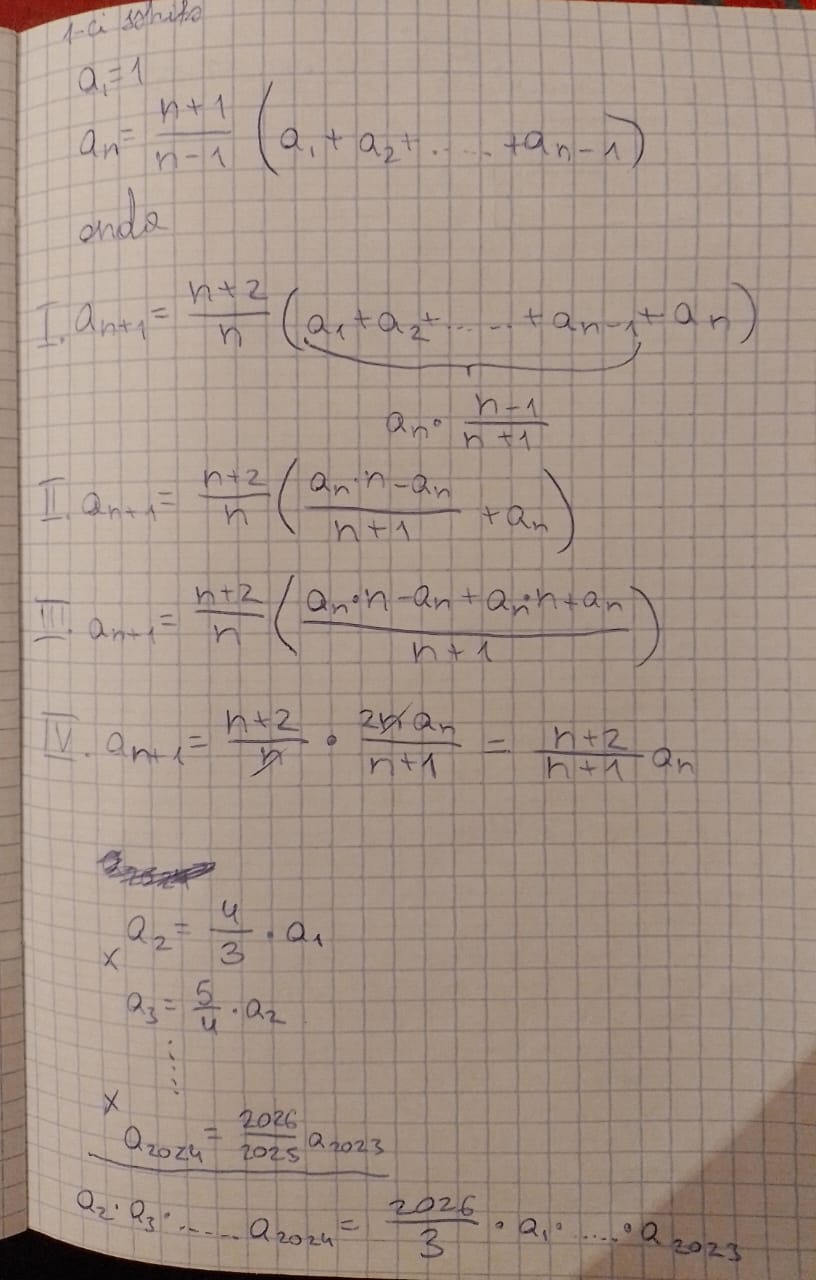 1-ci səhifə
a₁=1
aₙ= \frac{n+1}{n-1} (a₁ + a₂+ ..... +aₙ₋₁)
onda
I. aₙ₊₁= \frac{n+2}{n} (a₁ +a₂+ ...... + aₙ₋₁+ aₙ)
aₙ· \frac{n-1}{n+1}
II. aₙ₊₁= \frac{n+2}{n} (\frac{aₙ·n-aₙ}{n+1} +aₙ)
III. aₙ₊₁= \frac{n+2}{n} (\frac{aₙ·n-aₙ+aₙ·n+aₙ}{n+1})
IV. aₙ₊₁= \frac{n+2}{n} · \frac{2n aₙ}{n+1} = \frac{n+2}{n+1} aₙ
a₂= \frac{4}{3} · a₁
x
a₃= \frac{5}{4} ·a₂
x
a₂₀₂₄= \frac{2026}{2025} a₂₀₂₃
a₂· a₃· ....... a₂₀₂₄= \frac{2026}{3} · a₁· ......· a₂₀₂₃